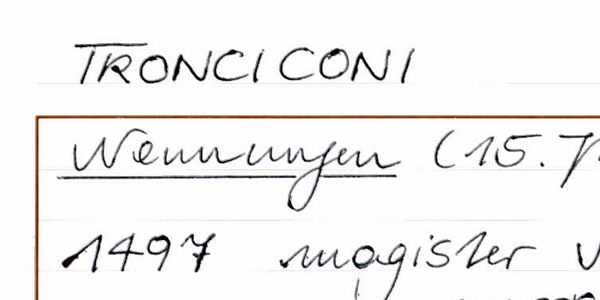 TRONCICONI
Nennungen (15. J
1497 magister v